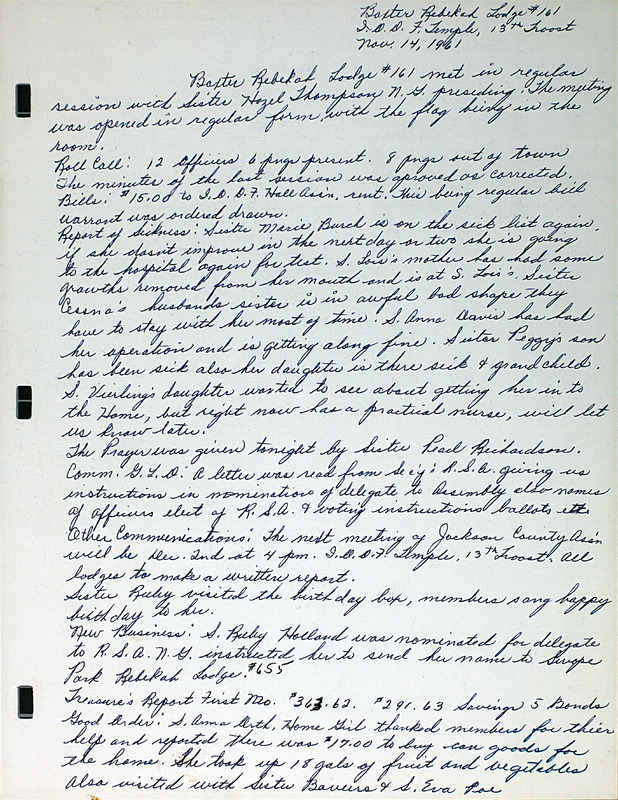 Baxter Rebekah Lodge #161
I.O.O.F. Temple, 13th Troost
Nov. 14, 1961
Baxter Rebekah Lodge #161 met in regular
session with Sister Hazel Thompson N.G. presiding. The meeting
was opened in regular form, with the flag being in the
room.
Roll Call: 12 Officers 6 pngs present. 8 pngs out of town
The minutes of the last session was aproved as corrected.
Bills: $15.00 to I.O.O.F. Hall Assn, rent. This being regular bill
warrant was ordered drawn.
Report of Sickness: Sister Marie Burch is on the sick list again,
if she dosn't improve in the next day or two she is going
to the hospital again for test. S. Lois's mother has had some
growths removed from her mouth and is at S. Lois's. Sister
Cessna's husbands sister is in awful bad shape they
have to stay with her most of time. S. Anna Davis has had
her operation and is getting along fine. Sister Peggy's son
has been sick also her daughter is there sick & grandchild.
S. Vierling's daughter wanted to see about getting her in to
the Home, but right now has a practical nurse, will let
us know later.
The Prayer was given tonight by Sister Pearl Richardson.
Comm. G.L.O. A letter was read from Secy: R.S.A. giving us
instructions in nomination of delegate to Assembly also names
of officers elect of R.S.A. & voting instructions ballots
Other Communications: The next meeting of Jackson County Assn
will be Dec. 2nd at 4 pm. I.O.O.F. Temple, 13th Troost. All
lodges to make a written report.
Sister Ruby visited the birthday box, members sang happy
birthday to her.
New Business: S. Ruby Holland was nominated for delegate
to R.S.A. N.G. instructed her to send her name to Swope
Park Rebekah Lodge. #655
Treasure's Report First Mo. $363.62. $291.63 Savings 5 Bonds
Good Order: S. Anna Orth, Home Girl thanked members for thier
help and reported there was $17.00 to buy can goods for
the home. She took up 18 gals of fruit and vegetables
Also visited with Sister & S. Eva Poe